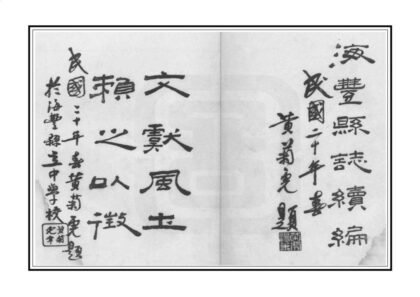 海豐縣誌續編
民國二十年春
黃菊寃題
文獻風土
賴之以徵
民國二十年春黃菊寃題
於海豐縣立中學校